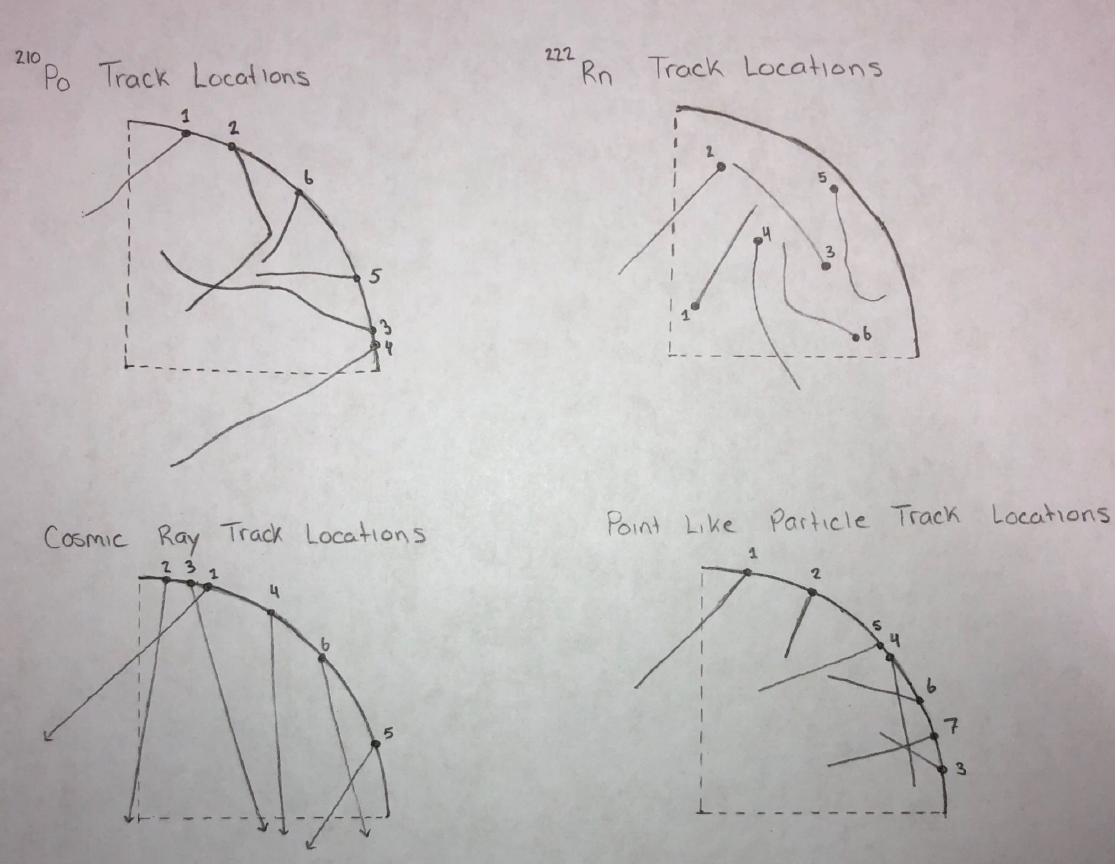 ²¹⁰Po Track Locations
1
2
6
5
3
4
²²²Rn Track Locations
2
5
4
3
1
6
Cosmic Ray Track Locations
2 3 1
4
6
5
Point Like Particle Track Locations
1
2
5
4
6
7
3